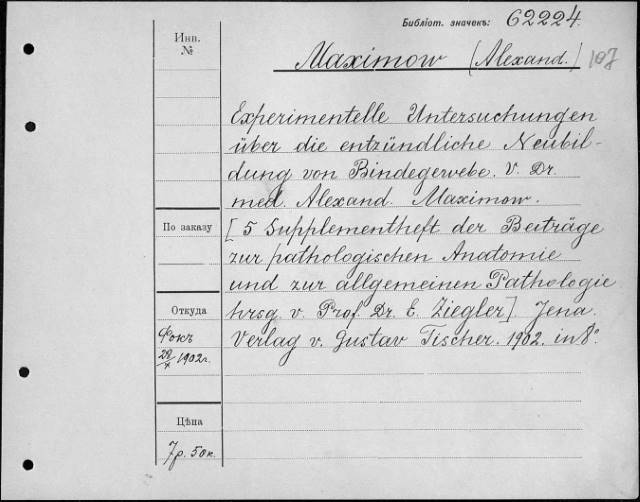 Библіот. значекъ: 62224.
Инв.
№
Maximow (Alexand.) 107
Experimentelle Untersuchungen
über die entzündliche Neubil-
dung von Bindegewebe. V. Dr.
med. Alexand. Maximow.
По заказу
[5 Supplementheft der Beiträge
zur pathologischen Anatomie
und zur allgemeinen Pathologie
Откуда
hrsg. v. Prof. Dr. E. Ziegler] Jena.
Фокъ
Verlag v. Gustav Fischer. 1902. in 8°.
28/X 1902г.
Цѣна
7р. 50к.